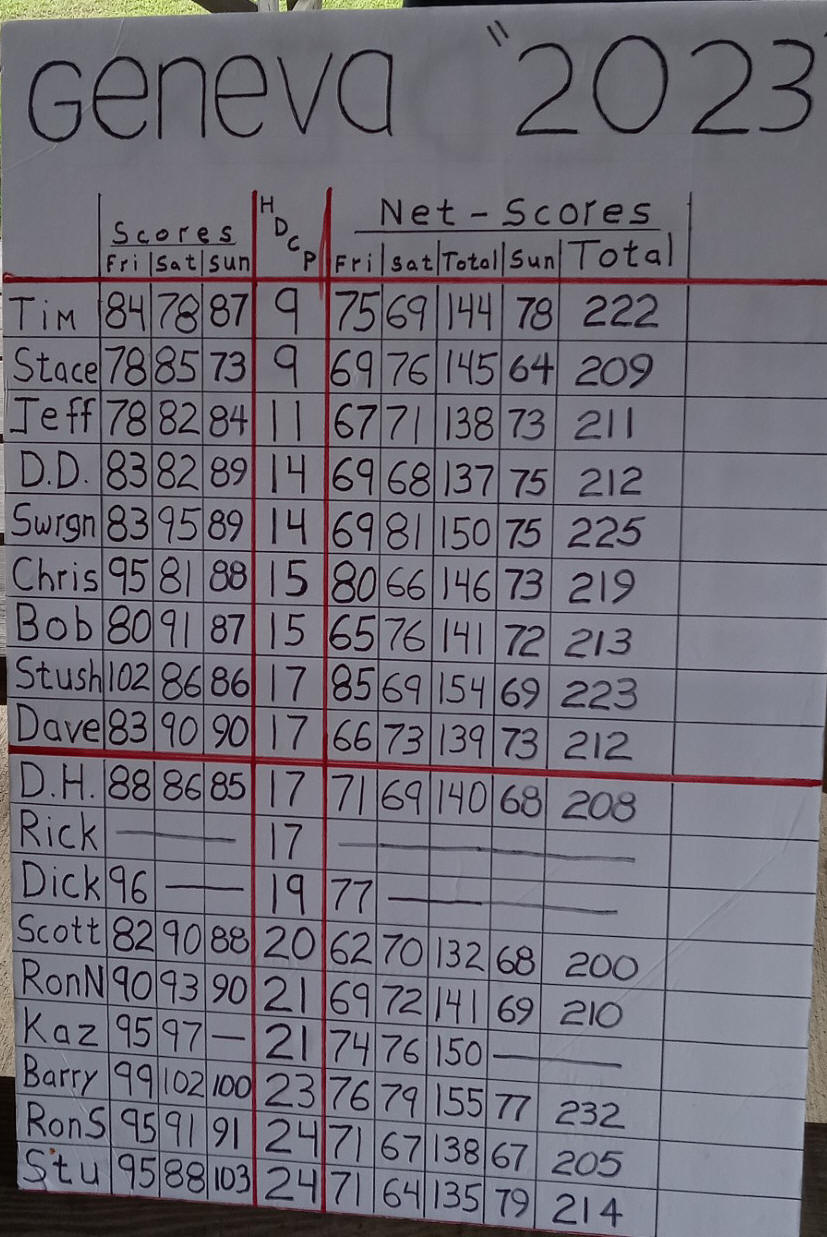 Geneva "2023"
Scores HDCP Net-Scores
Fri Sat Sun Fri Sat Total Sun Total
Tim 84 78 87 9 75 69 144 78 222
Stace 78 85 73 9 69 76 145 64 209
Jeff 78 82 84 11 67 71 138 73 211
D.D. 83 82 89 14 69 68 137 75 212
Swrgn 83 95 89 14 69 81 150 75 225
Chris 95 81 88 15 80 66 146 73 219
Bob 80 91 87 15 65 76 141 72 213
Stush 102 86 86 17 85 69 154 69 223
Dave 83 90 90 17 66 73 139 73 212
D.H. 88 86 85 17 71 69 140 68 208
Rick — 17 —
Dick 96 — 19 77 —
Scott 82 90 88 20 62 70 132 68 200
RonN 90 93 90 21 69 72 141 69 210
Kaz 95 97 — 21 74 76 150 —
Barry 99 102 100 23 76 79 155 77 232
RonS 95 91 91 24 71 67 138 67 205
Stu 95 88 103 24 71 64 135 79 214